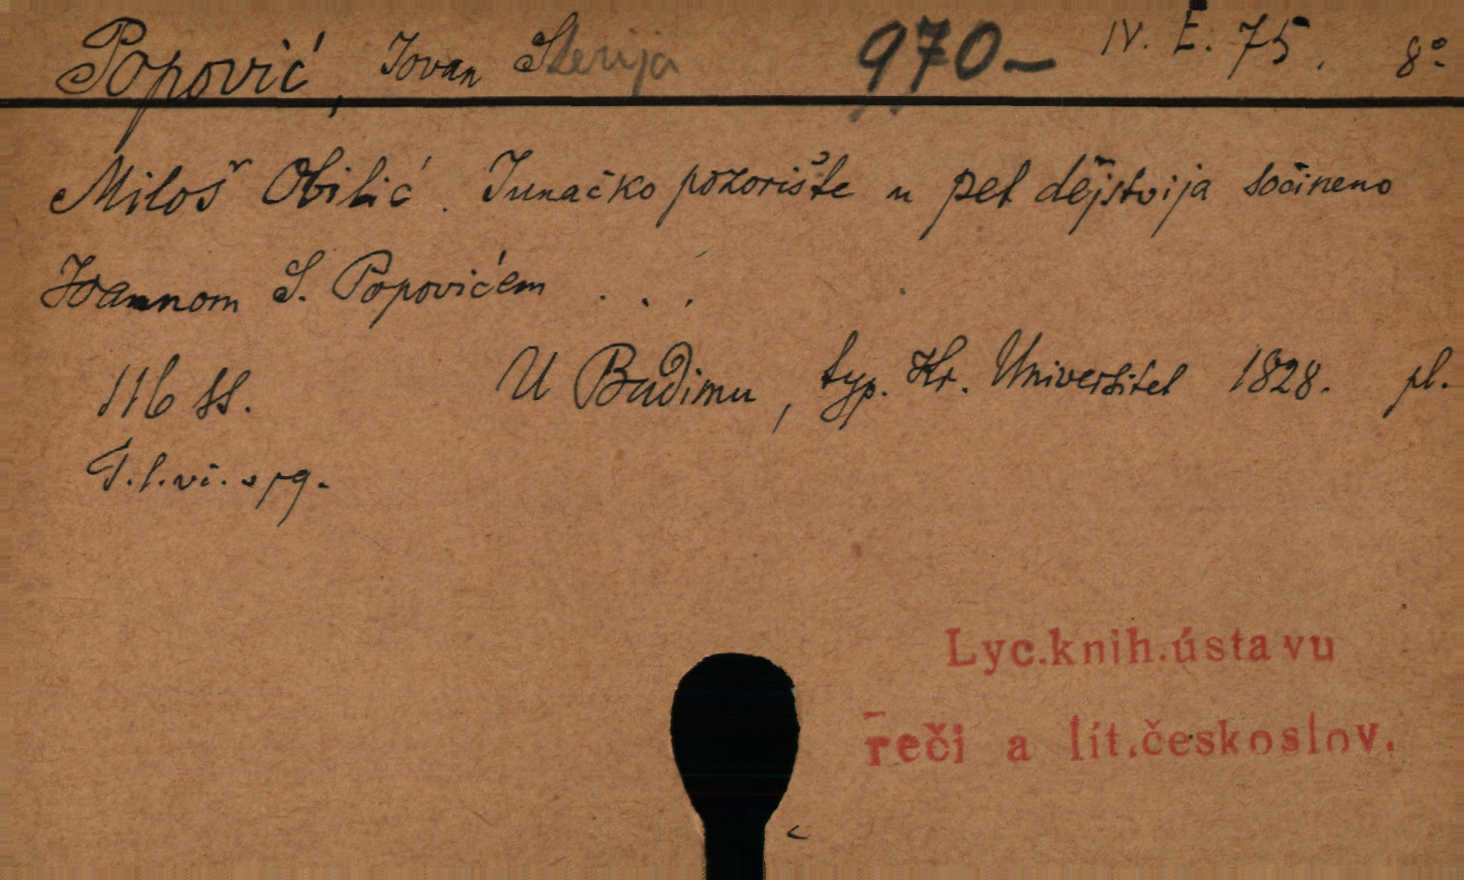 Popović, Jovan Sterija 970- IV. E. 75. 8°
Miloš Obilić. Junačko pozorište u pet dějstvija sočineno
Joannom S. Popovićem . . .
116 ss. U Budimu, typ. Kr. Universitet 1828. pl.
Lyc.knih.ústavu
řeči a lit.českoslov.